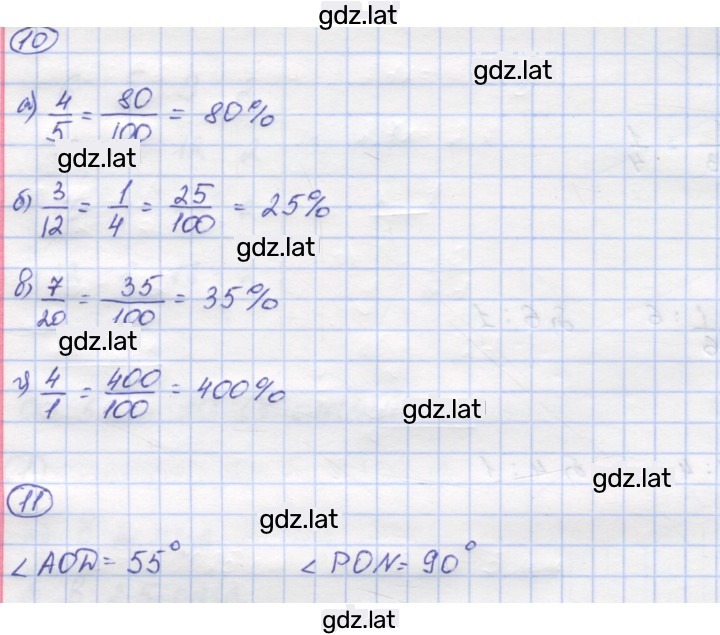 gdz.lat
10
gdz.lat
а) 4/5 = 80/100 = 80%
gdz.lat
б) 3/12 = 1/4 = 25/100 = 25%
gdz.lat
в) 7/20 = 35/100 = 35%
gdz.lat
г) 4/1 = 400/100 = 400%
gdz.lat
gdz.lat
11
gdz.lat
∠AOD = 55° ∠PON = 90°
gdz.lat